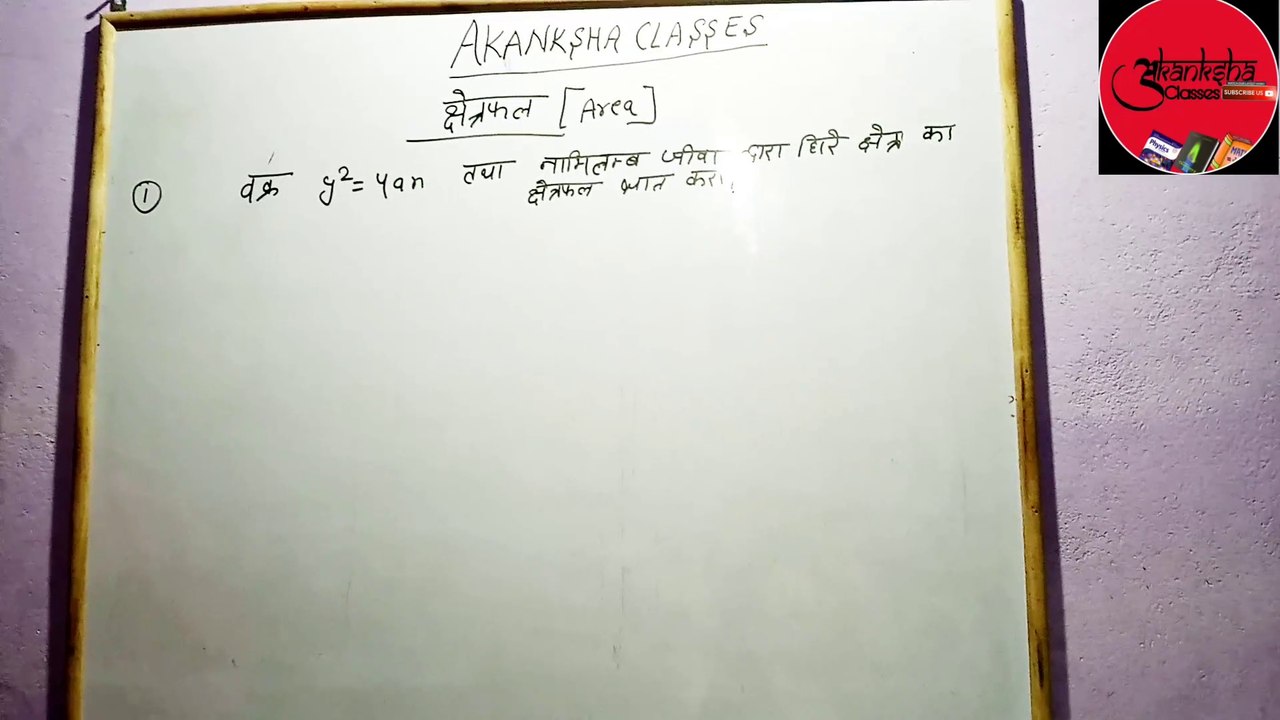 AKANKSHA CLASSES
क्षेत्रफल [Area]
① वक्र y²=4ax तथा नाभिलम्ब जीवा द्वारा घिरे क्षेत्र का
क्षेत्रफल ज्ञात करो।
akanksha
Classes
SUBSCRIBE US
Physics